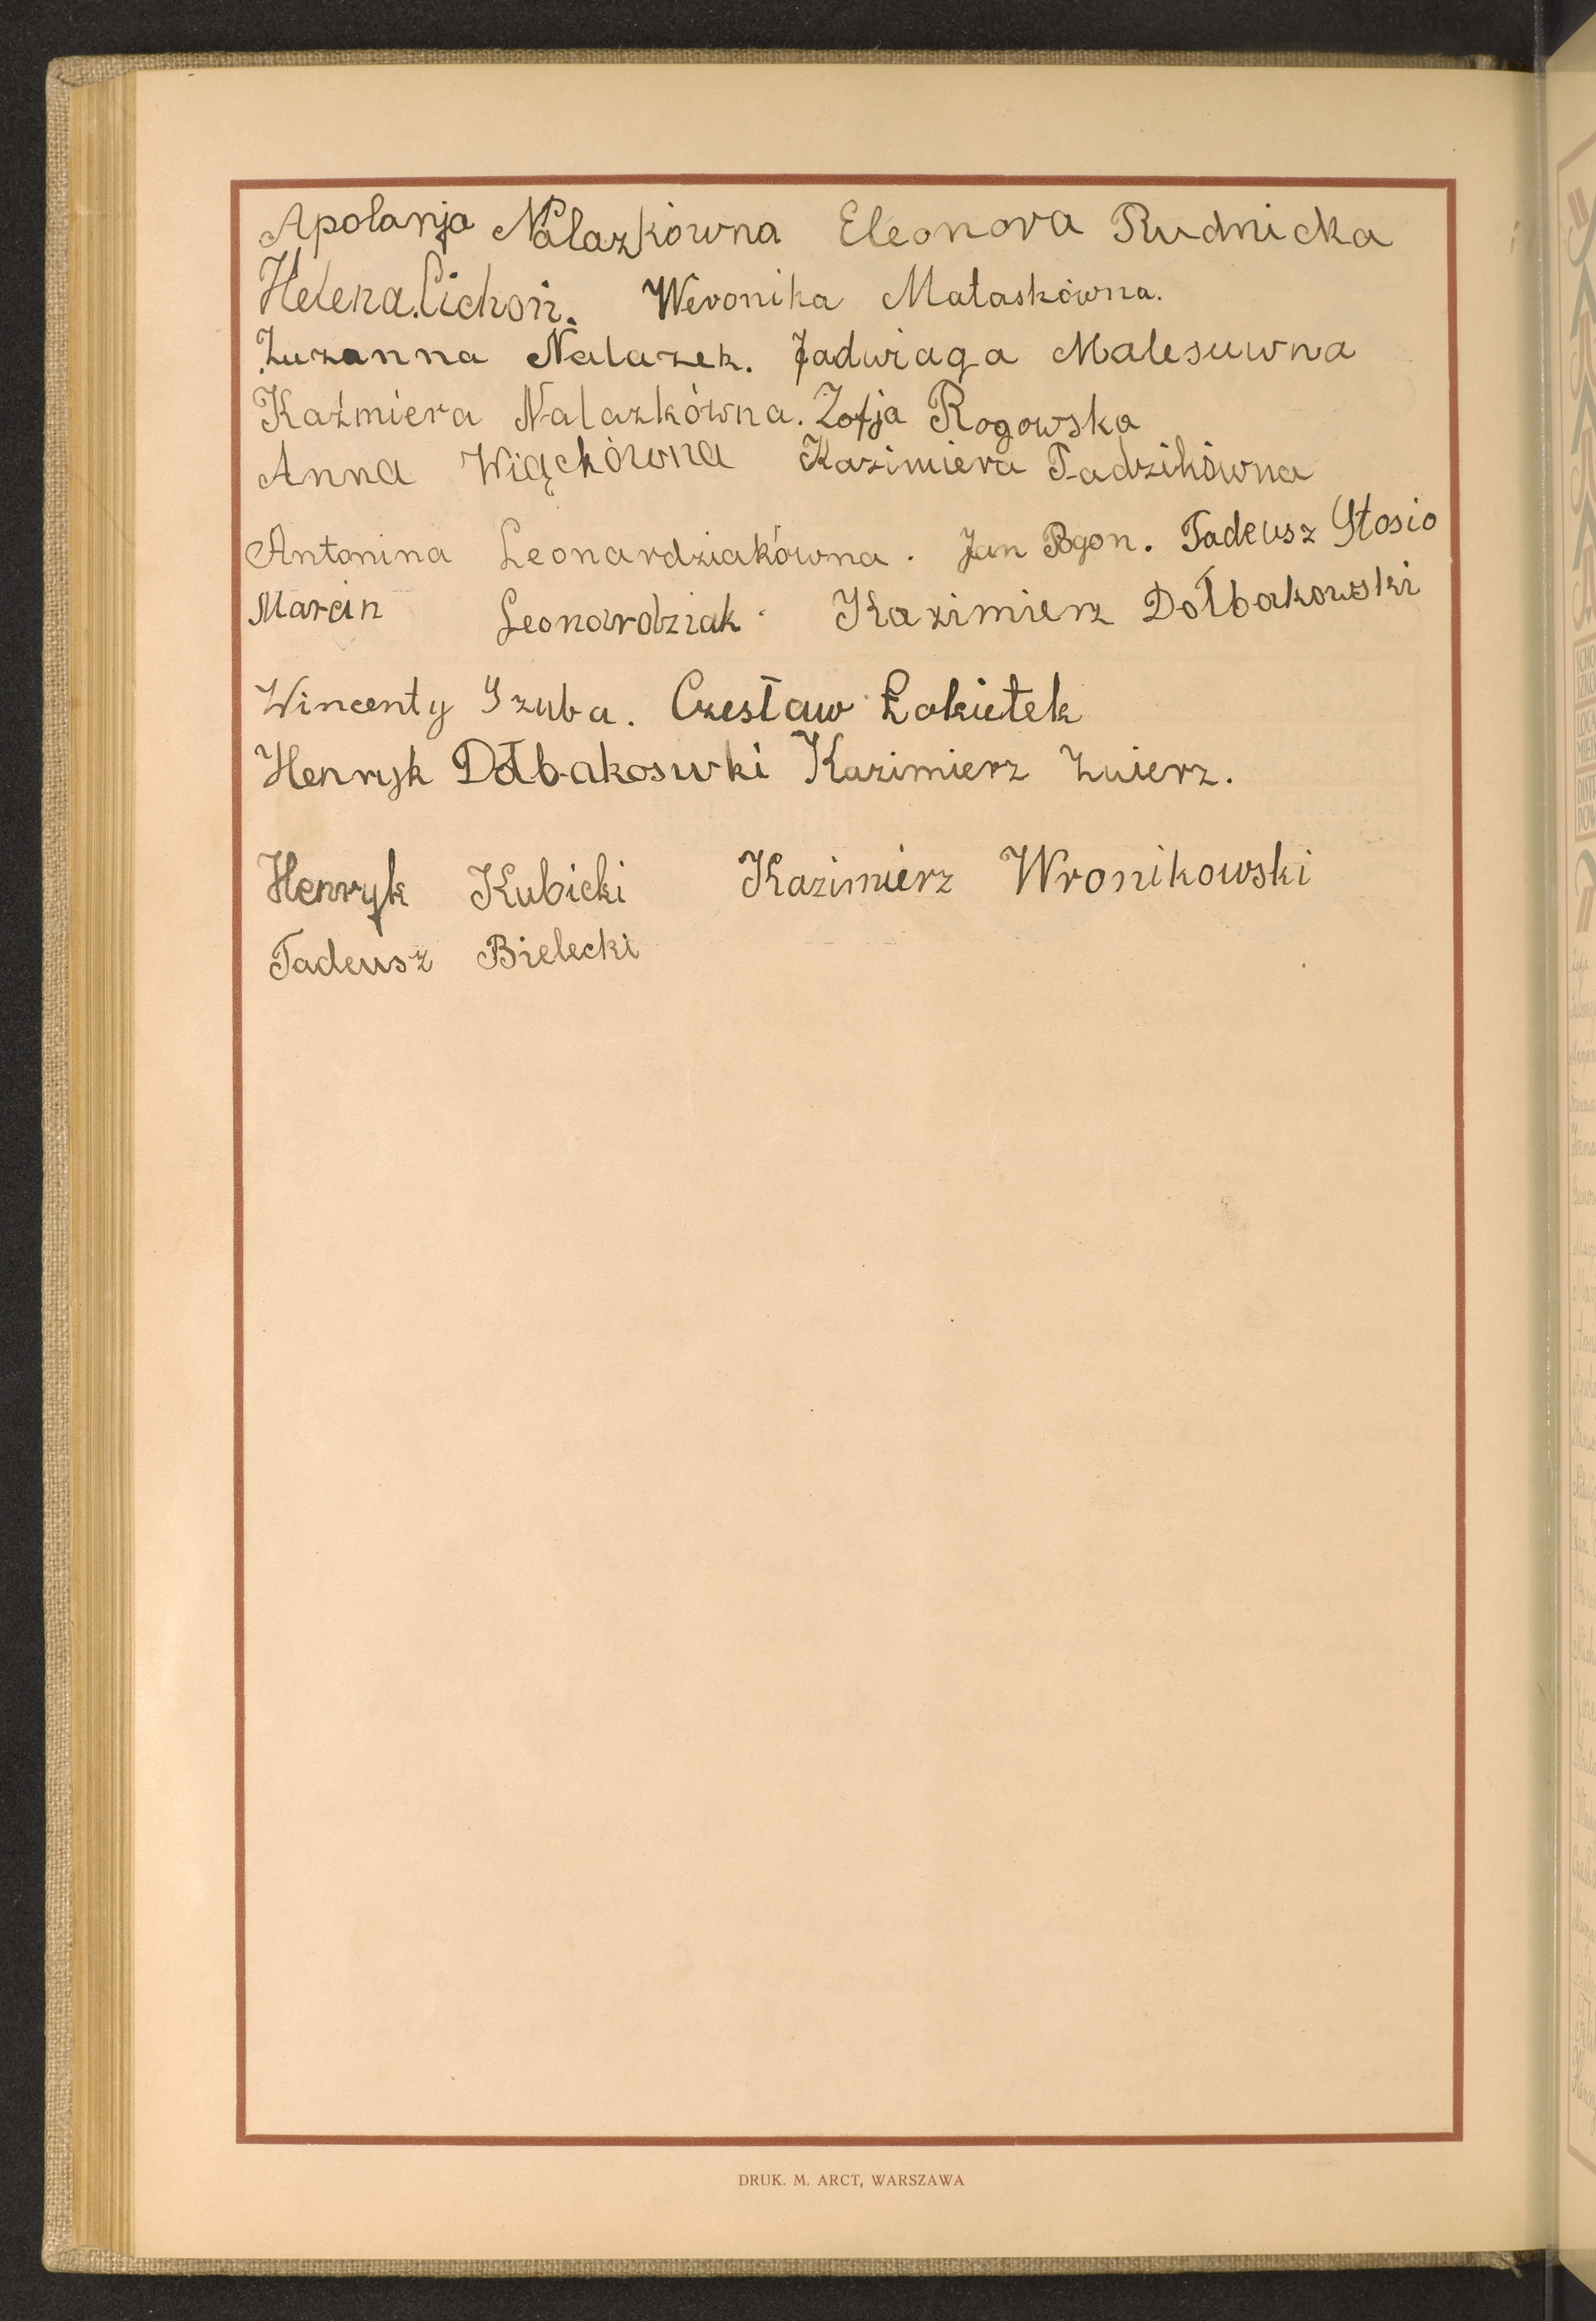 Apolanja Nalazkówna Eleonora Rudnicka
Helena Cichoń. Weronika Mataskówna.
Zuzanna Nalazek. Jadwiaga Malesuwna
Kaźmiera Nalazkówna. Zofja Rogowska
Anna Wiąckówna Kazimiera Tadzikówna
Antonina Leonardziakówna. Jan Bgon. Tadeusz Stosio
Marcin Leonardziak. Kazimierz Dołbakowski
Wincenty Szuba. Czesław Łokietek
Henryk Dołbakoswki Kazimierz Zwierz.
Henryk Kubicki Kazimierz Wronikowski
Tadeusz Bielecki
DRUK. M. ARCT, WARSZAWA